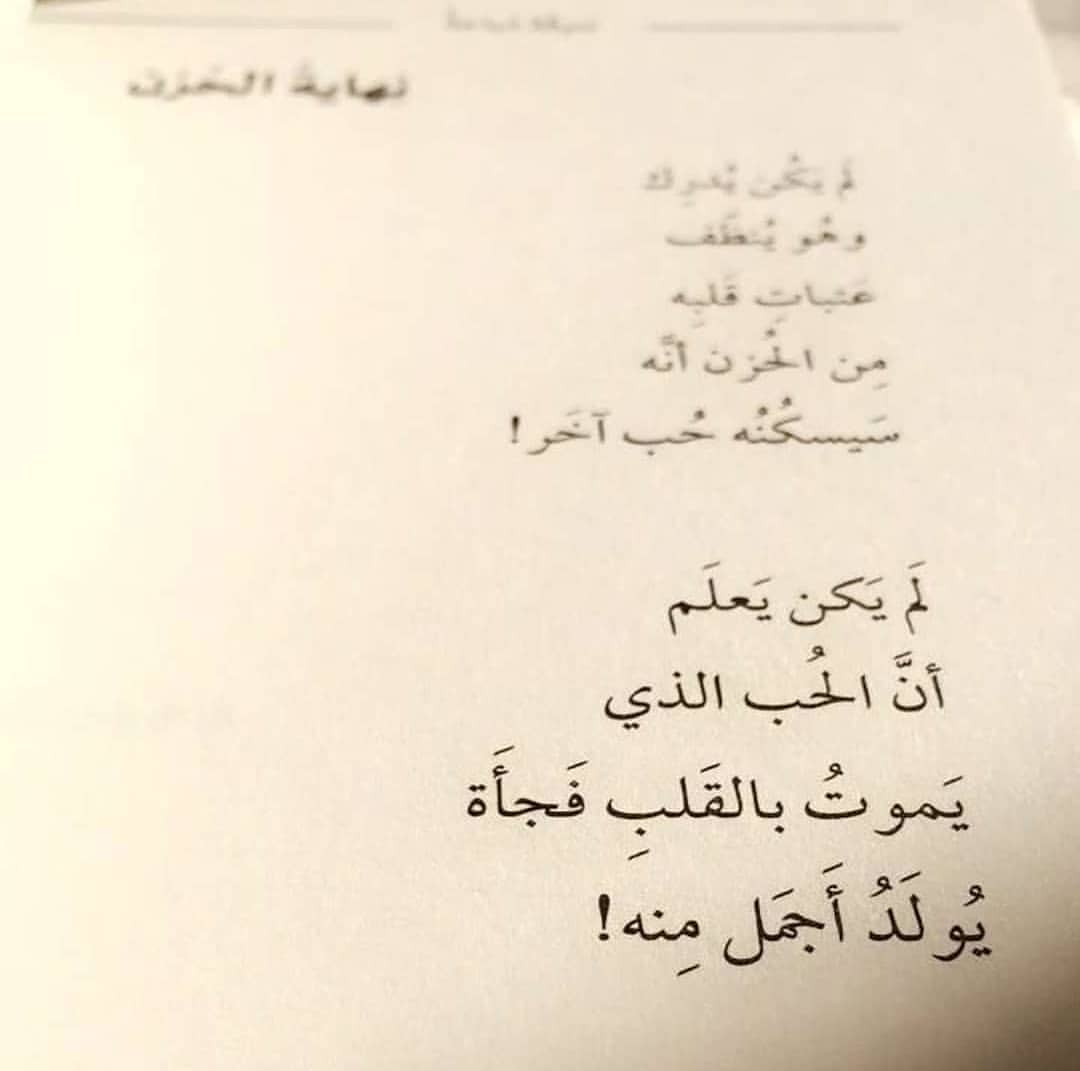 نهاية الحزن
لَم يَكُن يُدرِك
وهُو يُنظّف
عَتباتِ قَلبِه
مِن الحُزن أنَّه
سَيسكُنُه حُب آخَر!
لَم يَكن يَعلَم
أنَّ الحُب الذي
يَموتُ بالقَلبِ فَجأَة
يُولَدُ أَجمَل مِنه!